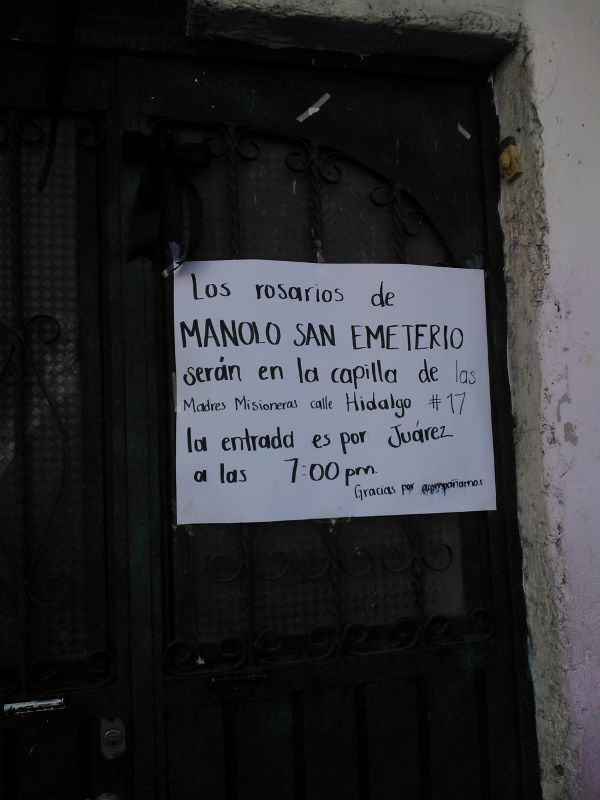 Los rosarios de
MANOLO SAN EMETERIO
serán en la capilla de las
Madres Misioneras calle Hidalgo #17
la entrada es por Juárez
a las 7:00 pm.
Gracias por acompañarnos.